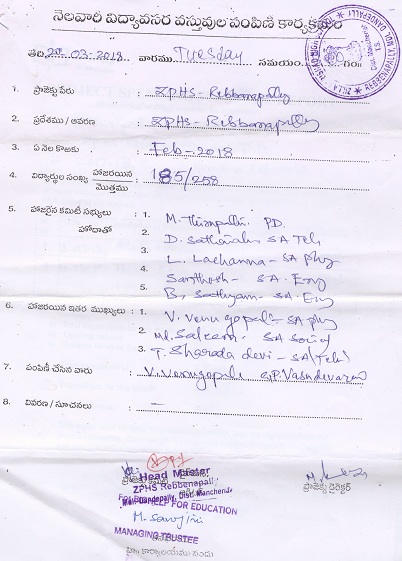 నెలవారీ విద్యావసర వస్తువుల పంపిణి కార్యక్రమం
తేది 20.03.2018 వారము Tuesday సమయం
1. ప్రాజెక్టు పేరు : ZPHS-Rebbanapally
2. ప్రదేశము / ఆవరణ : ZPHS-Rebbanapally
3. ఏ నెల కొఱకు : Feb-2018
4. విద్యార్థుల సంఖ్య హాజరయిన / మొత్తము : 185/258
5. హాజరైన కమిటీ సభ్యులు హోదాతో : 1. M. Thirupathi. PD.
2. D. Sathaiah SA Tel
3. L. Lachanna - SA phy
4. Santhosh - SA. Eng
5. B. Sathyam - SA. Eng
6. హాజరయిన ఇతర ముఖ్యులు : 1. V. Venu gopal - SA phy
2. Md. Saleem. SA Social
3. T. Sharada devi - SA (Tel)
7. పంపిణీ చేసిన వారు : V. Venugopal G.P. Vasudevarao
8. వివరణ / సూచనలు : —
Head Master
ZPHS Rebbenapalli
Mdl: Dandepally, Dist: Mancherial
HELP FOR EDUCATION
ప్రాజెక్టు డైరెక్టర్
M. Sarojini
MANAGING TRUSTEE
హై కార్యాలయము నందు